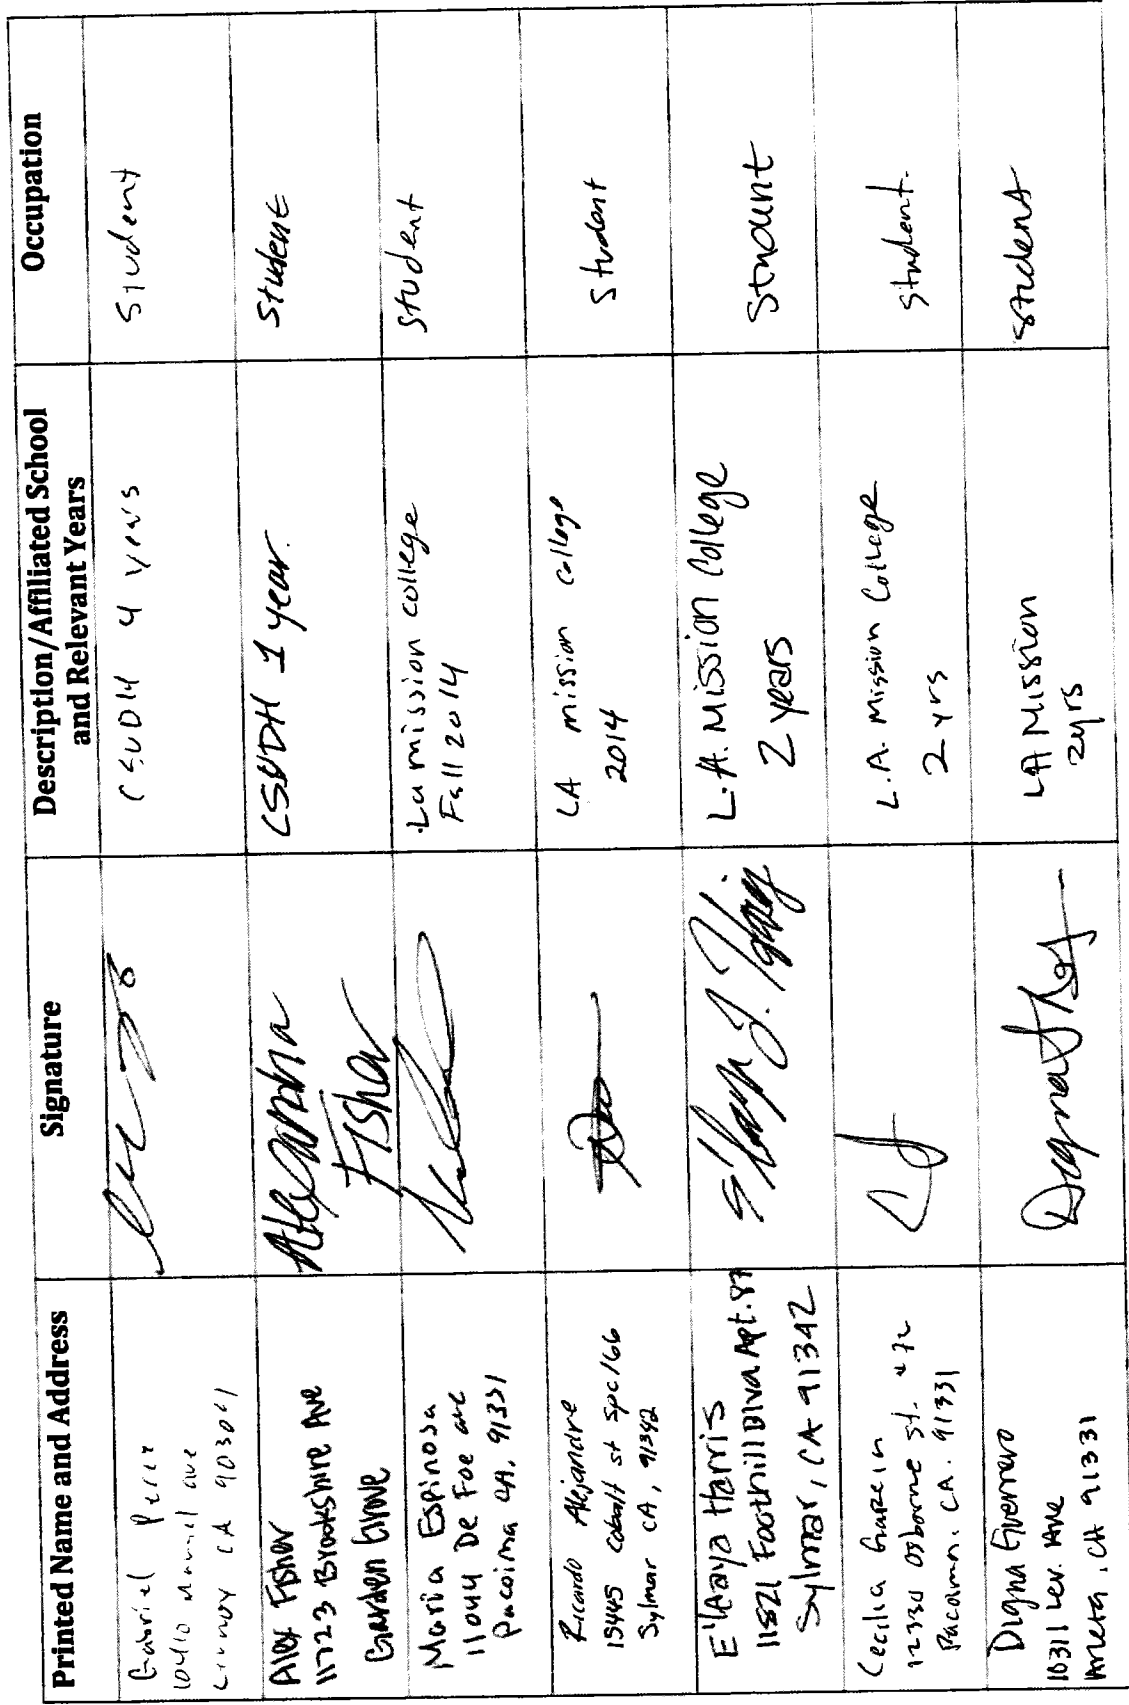 Printed Name and Address
Signature
Description/Affiliated School
and Relevant Years
Occupation
Gabriel Perez
ave
CA
CSUDH 4 years
Student
Alex Fisher
11723 Brookshire Ave
Garden Grove
Alexandria
Fisher
CSUDH 1 year.
Student
Maria Espinosa
11044 De Foe ave
Pacoima CA, 91331
La mission college
Fall 2014
Student
Ricardo Alejandre
15445 Cobalt st spc 166
Sylmar CA, 91342
LA mission college
2014
Student
E'laaya Harris
11521 Foothill Blvd Apt. 87
Sylmar, CA 91342
L.A. Mission College
2 years
Student
Cecilia
12230 Osborne st. #72
Pacoima. CA. 91331
L.A. Mission College
2 yrs
Student.
Digna Guerrero
10311 Lev. Ave
Arleta, CA 91331
LA Mission
2yrs
Student